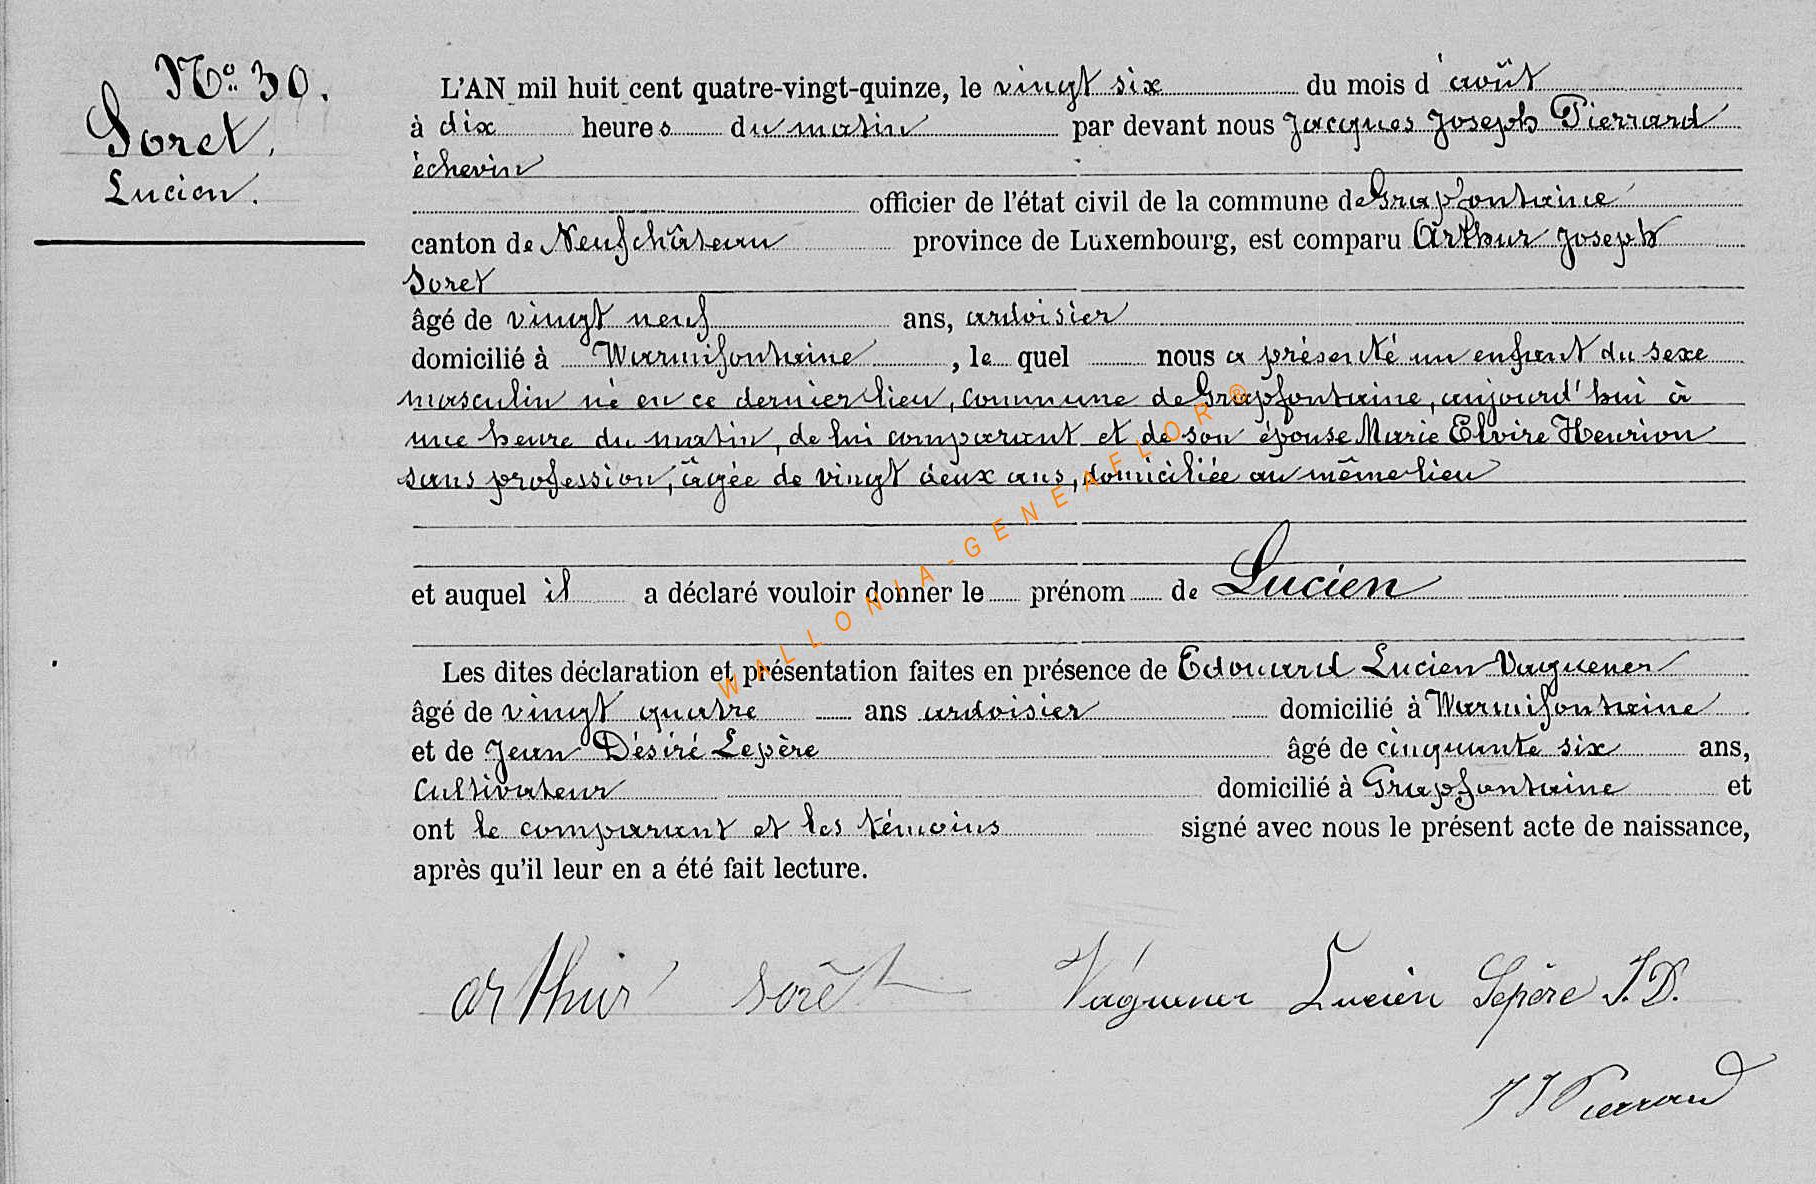 N° 30.
Soret,
Lucien.
L'AN mil huit cent quatre-vingt-quinze, le vingt six du mois d'août
à dix heures du matin par devant nous Jacques Joseph Pierrard
échevin
officier de l'état civil de la commune de Grapfontaine
canton de Neufchâteau province de Luxembourg, est comparu Arthur Joseph
Soret
âgé de vingt neuf ans, ardoisier
domicilié à Warmifontaine, le quel nous a présenté un enfant du sexe
masculin né en ce dernier lieu, commune de Grapfontaine, aujourd'hui à
une heure du matin, de lui comparant et de son épouse Marie Elvire Henrion
sans profession, âgée de vingt deux ans, domiciliée au même lieu
et auquel il a déclaré vouloir donner le prénom de Lucien
Les dites déclaration et présentation faites en présence de Edouard Lucien Vaguener
âgé de vingt quatre ans ardoisier domicilié à Warmifontaine
et de Jean Désiré Lepère âgé de cinquante six ans,
cultivateur domicilié à Grapfontaine et
ont le comparant et les témoins signé avec nous le présent acte de naissance,
après qu'il leur en a été fait lecture.
arthur sorêt Váguener Lucien Lepère J.D.
JJ Pierrard
WALLONIA-GENEAFLOR®